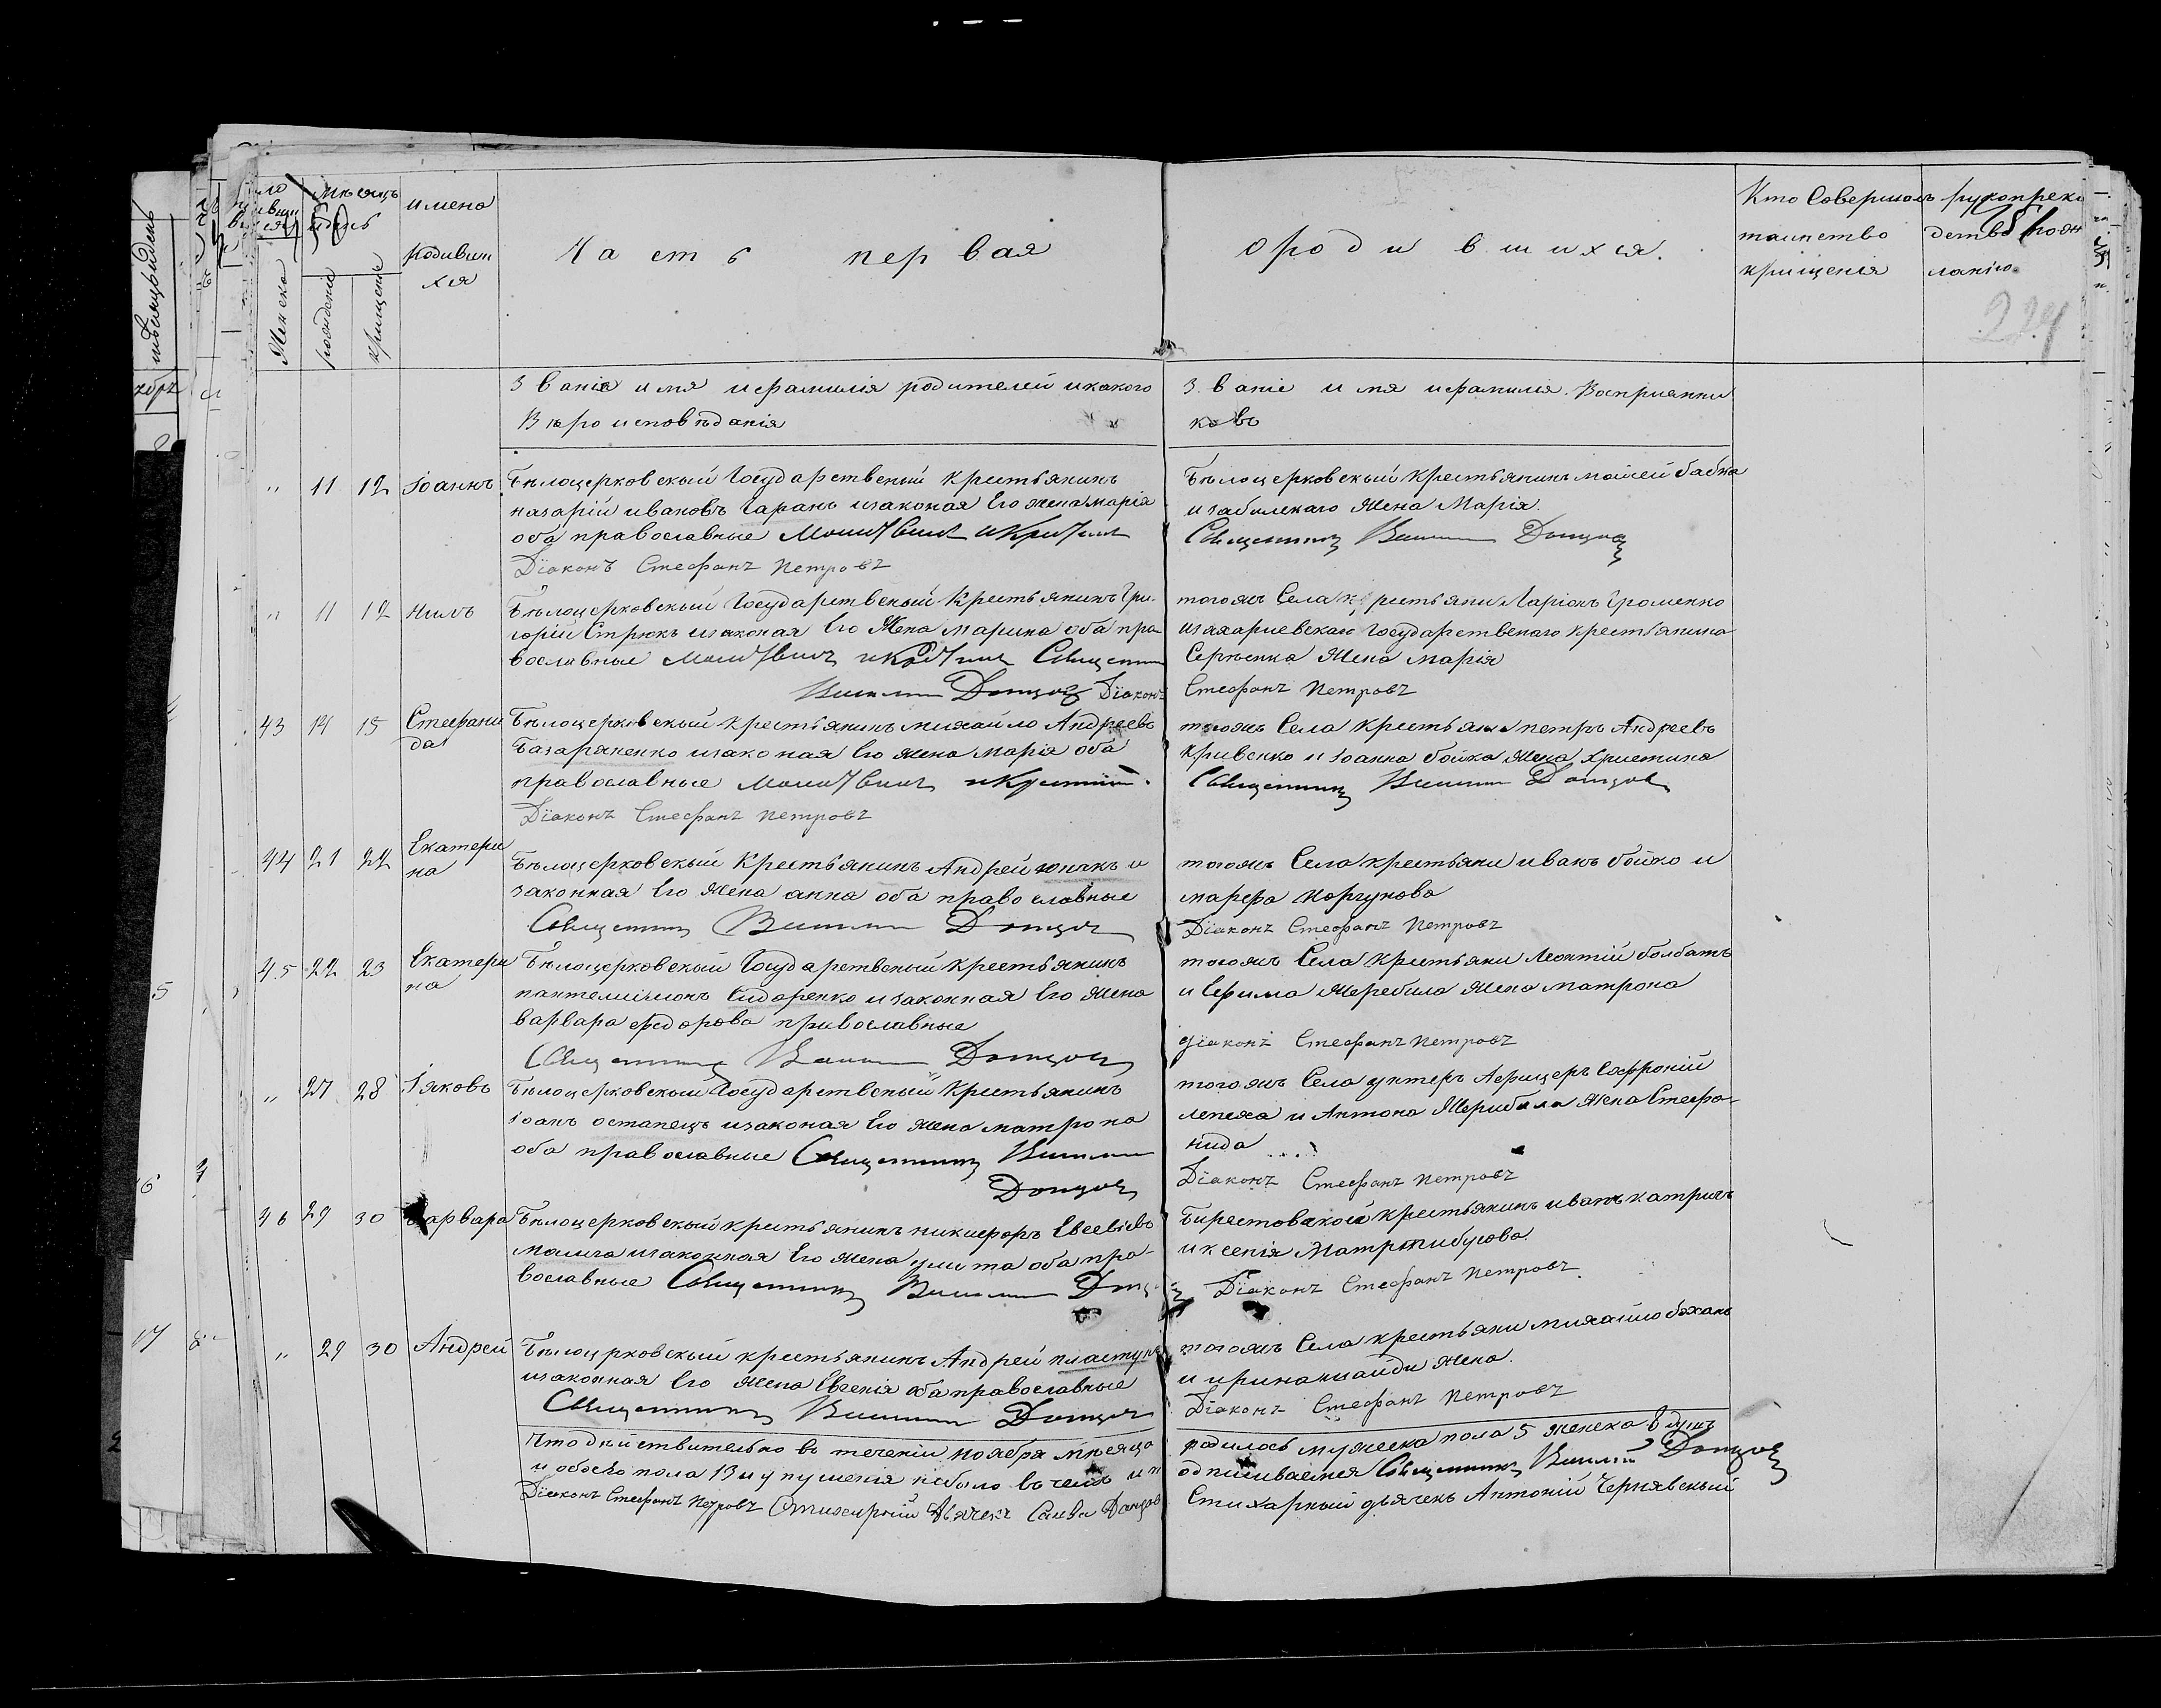 мѣсяцъ
имена
родивши
хся
Женска
рожденіе
крищеніе
Часть первая
о родившихся.
Кто Совершалъ
таинство
крищенія
рукопрекл
детво
ланію
224
Званіе имя ифамилія родителей икакого
Вѣроисповѣданія
Званіе имя ифамилія Восприемни
ковъ
" 11 12 Іоаннъ Бѣлоцерковский Государственый крестьянинъ
назарій ивановъ Гаранъ изаконая Его жена марія
оба православные Молитвил и Крестил
Діаконъ Стефанъ Петровъ
Бѣлоцерковский Крестьянинъ мойсей бабка
и забилскаго Жена Марія.
Священникъ Василий Донцовъ
" 11 12 Нилъ Бѣлоцерковский Государственый Крестьянинъ Гри-
горій Стрюкъ изаконая Его Жена марина оба пра-
вославные Священник
Василий Донцовъ Діаконъ
тогожъ Села крестьяни Ларіонъ Громенко
изахариевскаго Государственаго крестьянина
Сергѣенка Жена Марія
Стефанъ Петровъ
43 14 15 Стефани
да
Бѣлоцерковский крестьянинъ михайло Андреевъ
Базаряненко изаконая Его жена марія оба
православные
Діаконъ Стефанъ Петровъ
тогожъ Села Крестьяни петръ Андреевъ
кривенко и Іоанна бойка жена Христина
Священникъ Василий Донцовъ
44 21 22 Екатери
на
Бѣлоцерковский Крестьянинъ Андрей юнакъ и
законная Его Жена анна оба православные
Священникъ Василий Донцовъ
тогожъ Села крестьяни иванъ бойко и
марфа Моргунова
Діаконъ Стефанъ Петровъ
45 22 23 Екатери
на
Бѣлоцерковский Государственый Крестьянинъ
пантелиімонъ Сидоренко изаконная Его Жена
варвара федорова православные
Священникъ Василий Донцовъ
тогожъ Села Крестьяни Леонтій болбатъ
и Ефима Жеребила Жена матрона
діаконъ Стефанъ Петровъ
" 27 28 Іяковъ Бѣлоцерковский Государственый Крестьянинъ
Іоанъ останецъ изаконая Его жена матрона
оба православные Священникъ Василий
Донцовъ
тогожъ Села унтеръ Афицеръ Сафроній
лепеха и Антона Жерибила Жена Стефа-
нида
Діаконъ Стефанъ Петровъ
46 29 30 варвара Бѣлоцерковский крестьянинъ никифоръ Евсевіевъ
изаконная Его Жена улита оба пра-
вославные Священникъ Василий Донц
Бирестовакой крестьянинъ иванъ катричъ
и ксенія
Діаконъ Стефанъ Петровъ.
" 29 30 Андрей Бѣлоцрковский крестьянинъ Андрей пластунъ
изаконная Его Жена Евгенія оба православные
Священникъ Василий Донцовъ
тогожъ Села крестьяни михайло бжханъ
и ирина найди жена.
Діаконъ Стефанъ Петровъ
Что дѣйствительно въ теченіи ноября мѣсяца
и обоего пола 13 и упущенія небыло въ чемъ и п
Діаконъ Стефанъ Петровъ Стихарній Дьячекъ Савва Донцовъ
родилось мужеска пола 5 женска 8 душъ
одписиваемся Священникъ Василій Донцовъ
Стихарный дьячекъ Антоній Чернявский